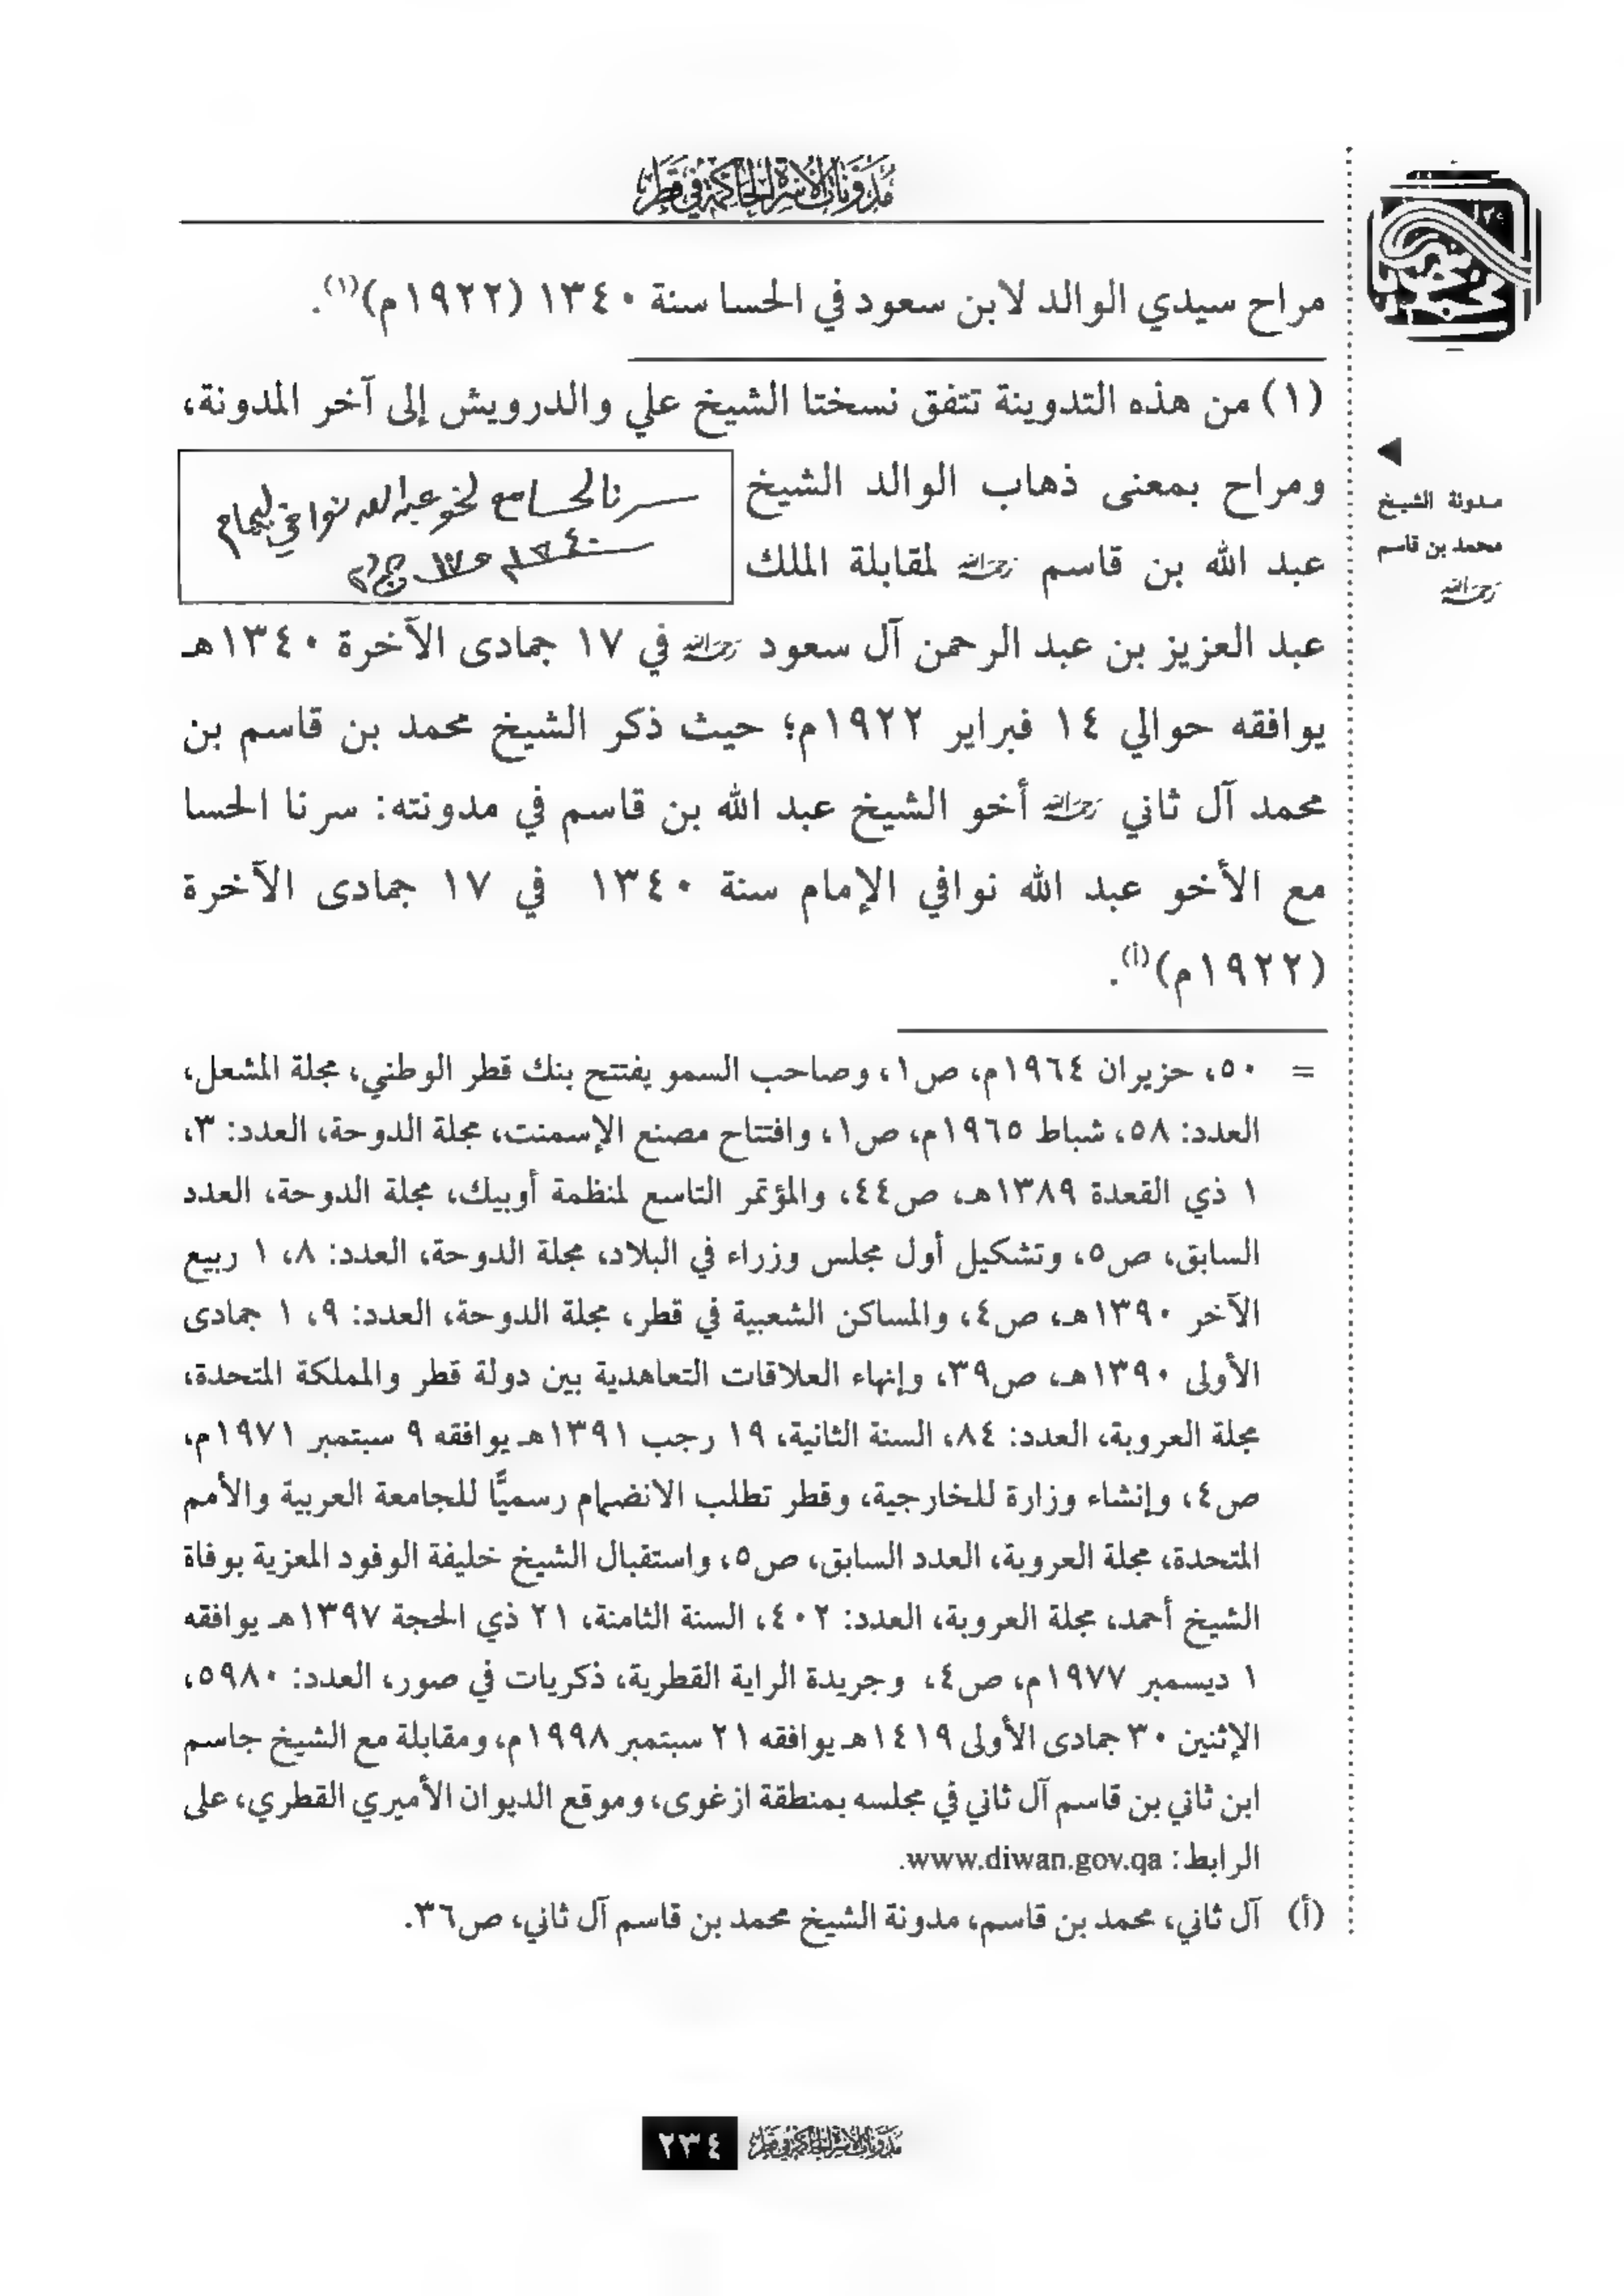 مدونات الأسرة الحاكمة في قطر
مراح سيدي الوالد لابن سعود في الحسا سنة ١٣٤٠ (١٩٢٢م)(١).
(١) من هذه التدوينة تتفق نسختا الشيخ علي والدرويش إلى آخر المدونة،
ومراح بمعنى ذهاب الوالد الشيخ
عبد الله بن قاسم رحمه الله لمقابلة الملك
سرنا لحسا مع لخو عبد الله نوافي ليمام
سنة ١٣٤٠ في ١٧
عبد العزيز بن عبد الرحمن آل سعود رحمه الله في ١٧ جمادى الآخرة ١٣٤٠هـ
يوافقه حوالي ١٤ فبراير ١٩٢٢م؛ حيث ذكر الشيخ محمد بن قاسم بن
محمد آل ثاني رحمه الله أخو الشيخ عبد الله بن قاسم في مدونته: سرنا الحسا
مع الأخو عبد الله نوافي الإمام سنة ١٣٤٠ في ١٧ جمادى الآخرة
(١٩٢٢م)(أ).
= ٥٠، حزيران ١٩٦٤م، ص١، وصاحب السمو يفتتح بنك قطر الوطني، مجلة المشعل،
العدد: ٥٨، شباط ١٩٦٥م، ص١، وافتتاح مصنع الإسمنت، مجلة الدوحة، العدد: ٣،
١ ذي القعدة ١٣٨٩هـ، ص٤٤، والمؤتمر التاسع لمنظمة أوبيك، مجلة الدوحة، العدد
السابق، ص٥، وتشكيل أول مجلس وزراء في البلاد، مجلة الدوحة، العدد: ٨، ١ ربيع
الآخر ١٣٩٠هـ، ص٤، والمساكن الشعبية في قطر، مجلة الدوحة، العدد: ٩، ١ جمادى
الأولى ١٣٩٠هـ، ص٣٩، وإنهاء العلاقات التعاهدية بين دولة قطر والمملكة المتحدة،
مجلة العروبة، العدد: ٨٤، السنة الثانية، ١٩ رجب ١٣٩١هـ يوافقه ٩ سبتمبر ١٩٧١م،
ص٤، وإنشاء وزارة للخارجية، وقطر تطلب الانضمام رسميًّا للجامعة العربية والأمم
المتحدة، مجلة العروبة، العدد السابق، ص٥، واستقبال الشيخ خليفة الوفود المعزية بوفاة
الشيخ أحمد، مجلة العروبة، العدد: ٤٠٢، السنة الثامنة، ٢١ ذي الحجة ١٣٩٧هـ يوافقه
١ ديسمبر ١٩٧٧م، ص٤، وجريدة الراية القطرية، ذكريات في صور، العدد: ٥٩٨٠،
الإثنين ٣٠ جمادى الأولى ١٤١٩هـ يوافقه ٢١ سبتمبر ١٩٩٨م، ومقابلة مع الشيخ جاسم
ابن ثاني بن قاسم آل ثاني في مجلسه بمنطقة ازغوى، وموقع الديوان الأميري القطري، على
الرابط: www.diwan.gov.qa.
(أ) آل ثاني، محمد بن قاسم، مدونة الشيخ محمد بن قاسم آل ثاني، ص٣٦.
مدونة الشيخ
محمد بن قاسم
رحمه الله
مدونات الأسرة الحاكمة في قطر ٢٣٤